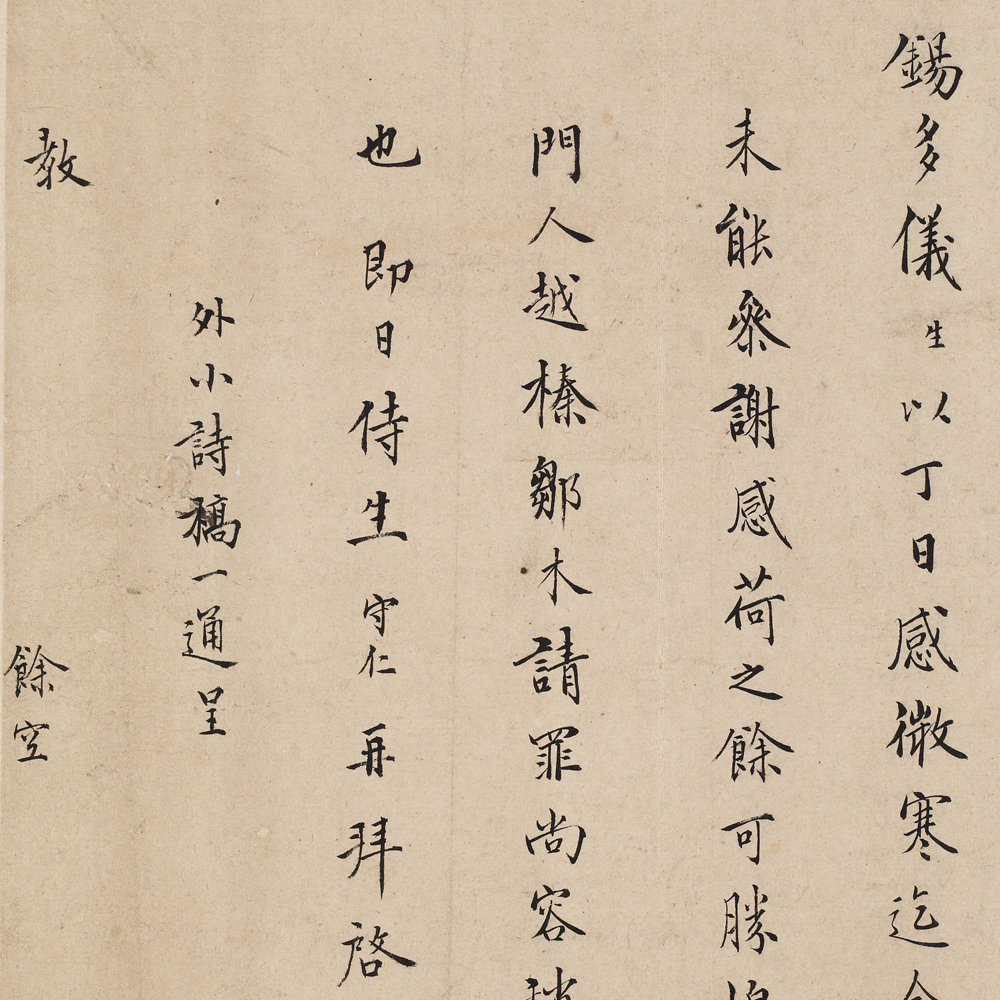 錫多儀生以丁日感微寒迄今
未能參謝感荷之餘可勝
門人越榛鄒木請罪尚容
也即日侍生守仁再拜啓
外小詩稿一通呈
教
餘空